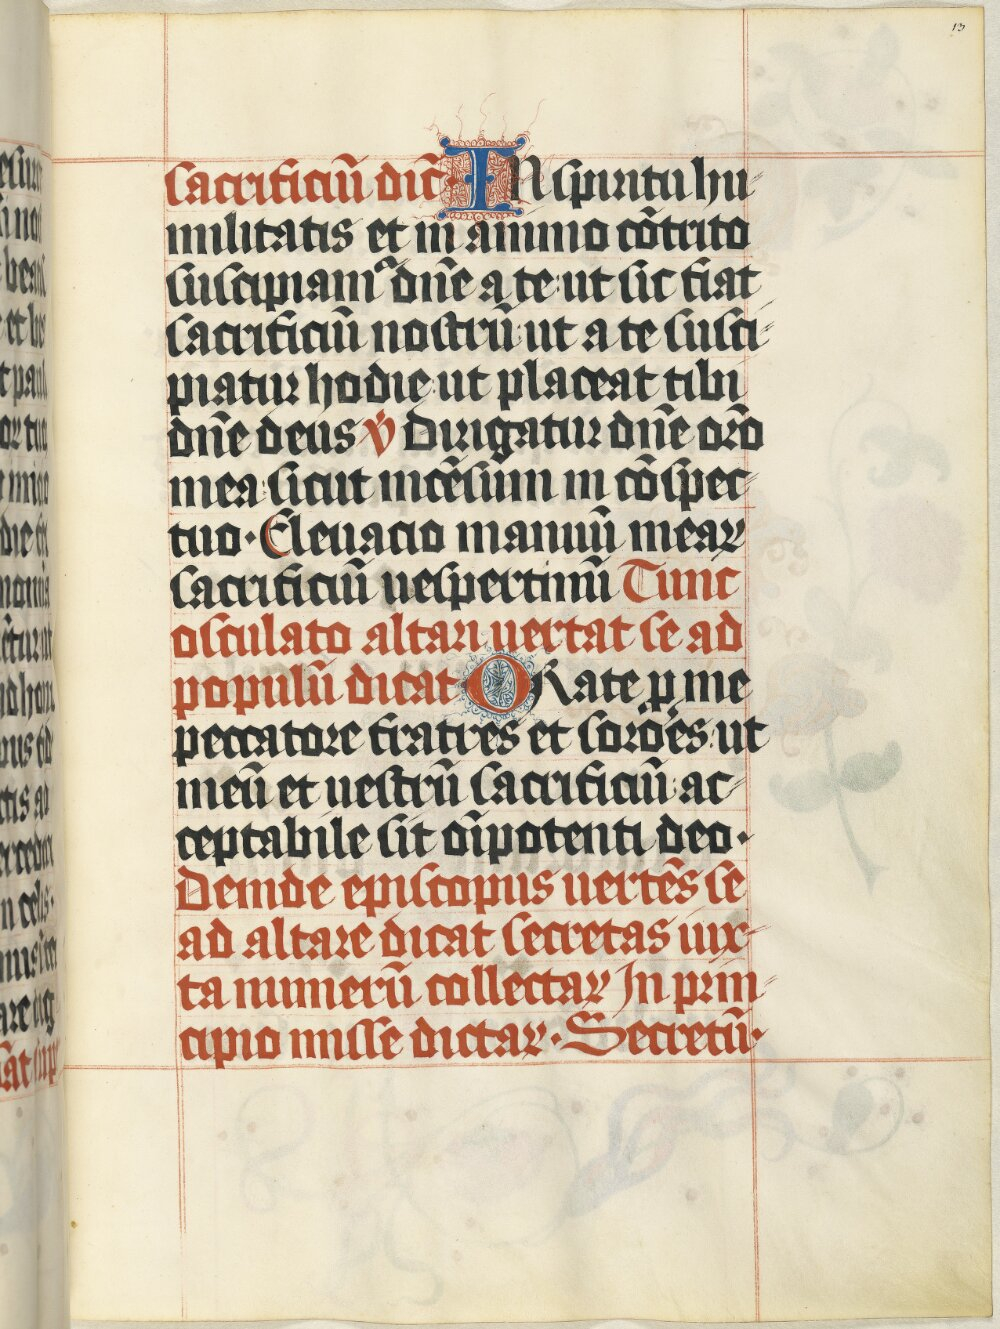 13
sacrificiū dic̄ IN spiritu hu
militatis et in animo cōtrito
suscipiamꝰ dn̄e a te ut sic fiat
sacrificiū nostrū ut a te susci
piatur hodie ut placeat tibi
dn̄e deus v̇ Dirigatur dn̄e or̄o
mea sicut incēsum in cōspec
tuo · Eleuacio manuū mearꝝ
sacrificiū uespertinū Tunc
osculato altari uertat se ad
populū dicat ORate ꝑ me
peccatore fratres et soro̅es ut
meū et uestrū sacrificiū ac
ceptabile sit oīpotenti deo ·
Deinde episcopus uertēs se
ad altare dicat secretas iux
ta numerū collectaꝝ In prin
cipio misse dictaꝝ · Secretū ·